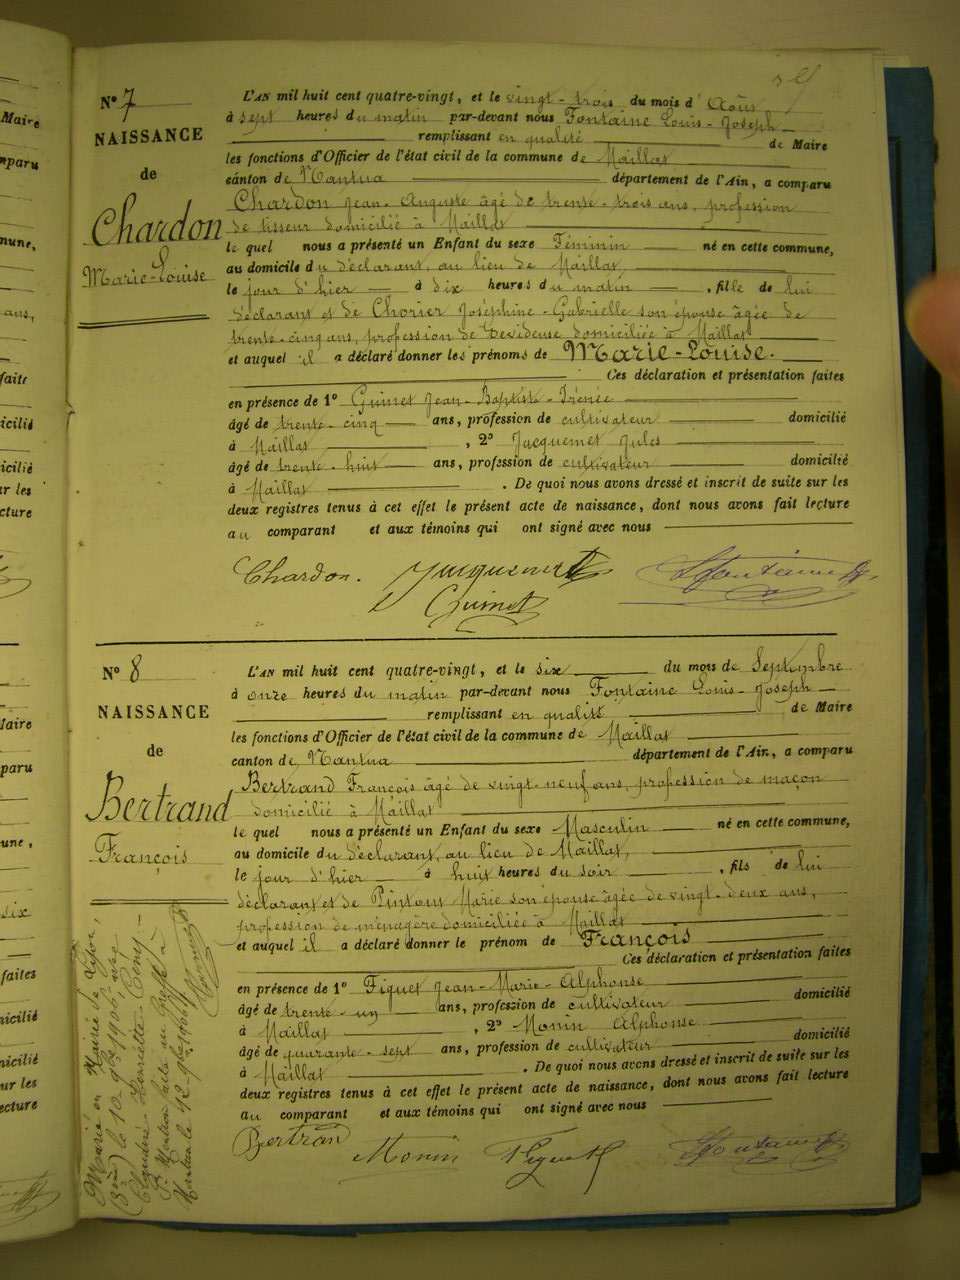 N° 7
NAISSANCE
de
Chardon
Marie-Louise
L'AN mil huit cent quatre-vingt, et le vingt-trois du mois d'Août
à sept heures du matin par-devant nous Fontaine Louis-Joseph
remplissant en qualité de Maire
les fonctions d'Officier de l'état civil de la commune de Maillat
canton de Nantua département de l'Ain, a comparu
Chardon Jean-Auguste âgé de trente-trois ans, profession
de tisseur domicilié à Maillat
le quel nous a présenté un Enfant du sexe Féminin né en cette commune,
au domicile du déclarant, au lieu de Maillat,
le jour d'hier à dix heures du matin, fille de lui
déclarant et de Chorier Joséphine-Gabrielle son épouse âgée de
trente-cinq ans, profession de Devideuse domiciliée à Maillat
et auquel il a déclaré donner les prénoms de Marie-Louise.
Ces déclaration et présentation faites
en présence de 1° Guinet Jean-Baptiste-Irénée
âgé de trente-cinq ans, profession de cultivateur domicilié
à Maillat, 2° Jacquemet Jules
âgé de trente-huit ans, profession de cultivateur domicilié
à Maillat. De quoi nous avons dressé et inscrit de suite sur les
deux registres tenus à cet effet le présent acte de naissance, dont nous avons fait lecture
au comparant et aux témoins qui ont signé avec nous
Chardon. Jacquemet LFontaine
Guinet
N° 8
NAISSANCE
de
Bertrand
François
L'AN mil huit cent quatre-vingt, et le six du mois de Septembre
à onze heures du matin par-devant nous Fontaine Louis-Joseph
remplissant en qualité de Maire
les fonctions d'Officier de l'état civil de la commune de Maillat
canton de Nantua département de l'Ain, a comparu
Bertrand François âgé de vingt-neuf ans, profession de maçon
domicilié à Maillat
le quel nous a présenté un Enfant du sexe Masculin né en cette commune,
au domicile du déclarant, au lieu de Maillat,
le jour d'hier à huit heures du soir, fils de lui
déclarant et de Pintoux Marie son épouse âgée de vingt-deux ans,
profession de ménagère domiciliée à Maillat
et auquel il a déclaré donner le prénom de François
Ces déclaration et présentation faites
en présence de 1° Figuet Jean-Marie-Alphonse
âgé de trente-un ans, profession de cultivateur domicilié
à Maillat, 2° Monin Alphonse
âgé de quarante-sept ans, profession de cultivateur domicilié
à Maillat. De quoi nous avons dressé et inscrit de suite sur les
deux registres tenus à cet effet le présent acte de naissance, dont nous avons fait lecture
au comparant et aux témoins qui ont signé avec nous
Bertran Monin Figuet LFontaine
Marié en Mairie de Lyon,
le 10 9bre 1906, avec
Claudine Henriette
Mention faite au Greffe à
Nantua le 12 9bre 1906